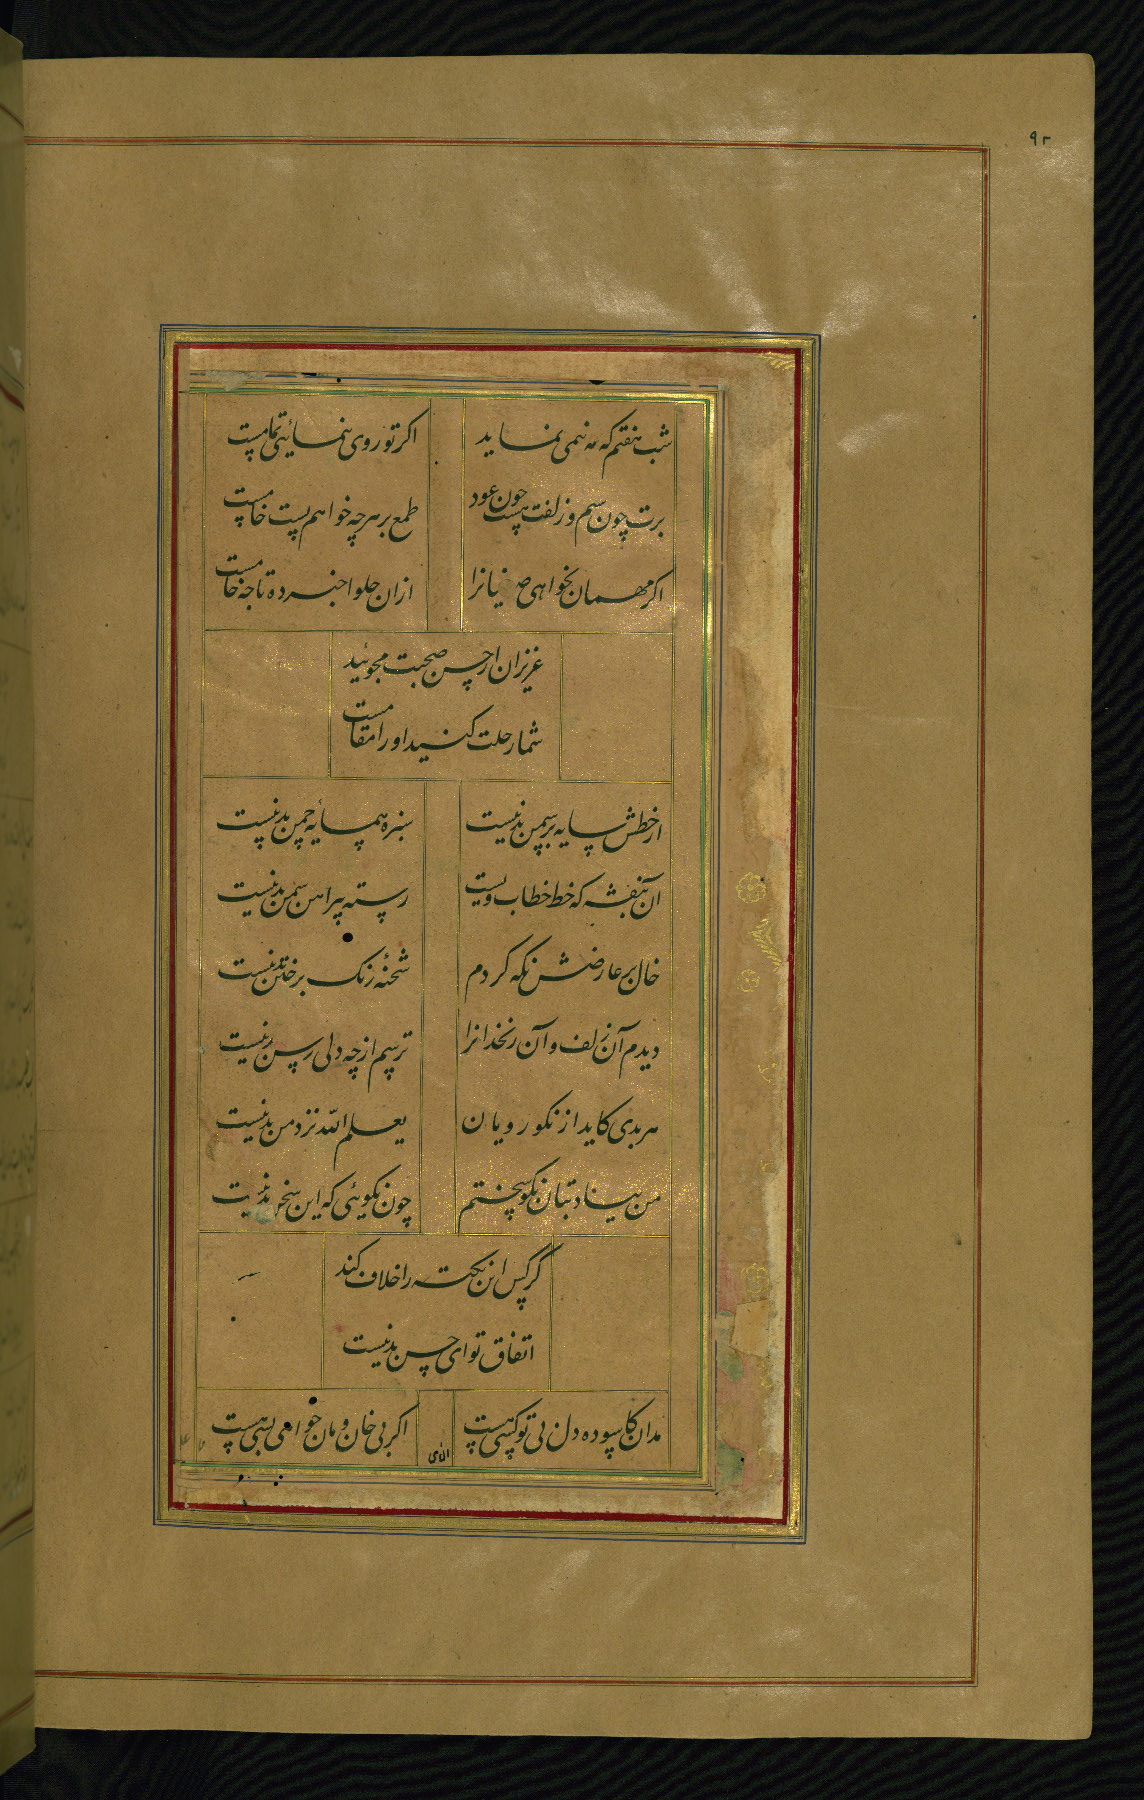 ۹۲
شب هفتم که مه نمی نماید اکر تو روی بنمائی تمامست
برت چون سیم و زلفت هست چون عود طمع بر هرچه خواهم پست خامست
اکر مهمان نخواهی ازان حلوا
عزیزان از حسن صحبت مجوئید
شما رحلت کنید او را مقامست
از خطش سایه بر سمن بد نیست سبزه همسایه چمن بد نیست
آن بنفشه که خط خطاب ویست رسته پیرامن سمن بد نیست
خال بر عارضش نکه کردم شحنه زنک بر ختن بد نیست
دیدم آن زلف و آن زنخدانرا ترسم از چه دلی رسن بد نیست
هر بدی کاید از نکورویان یعلم الله نزد من بد نیست
من بنیاد بتان نکو سختم چون نکوئی که این سخن بد نیست
کر کس این نکته را خلاف کند
اتفاق تو ای حسن بد نیست
مدان کاسوده دل بی تو کسی هست اکر بی خان و مان خواهی بسی هست